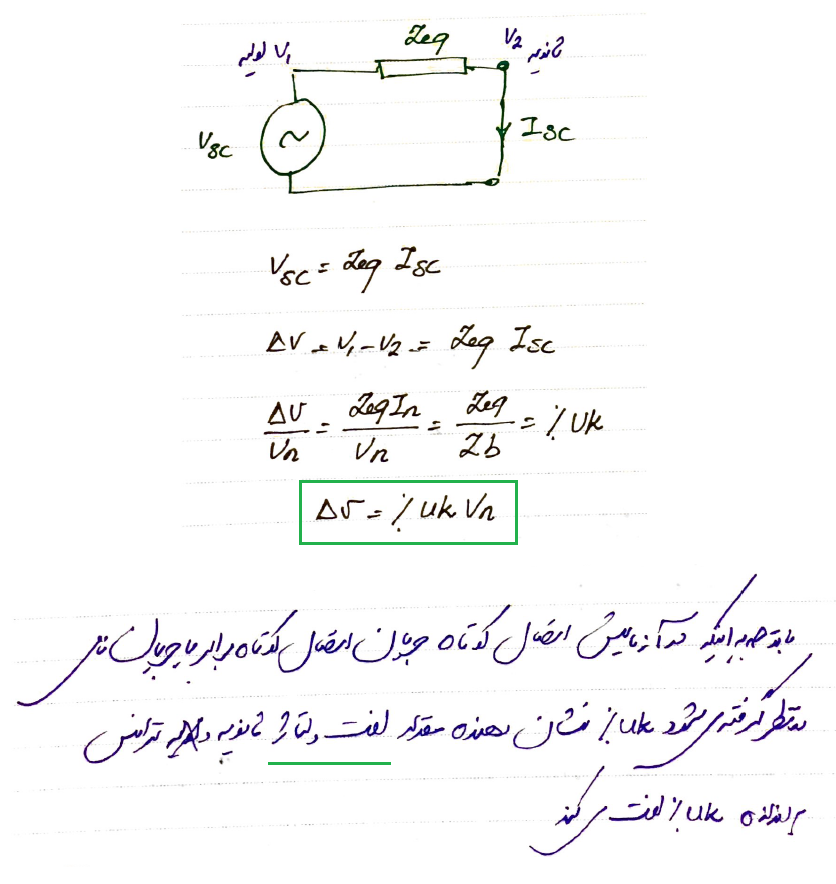 اولیه V1
Zeq
V2 ثانویه
Vsc
~
Isc
Vsc = Zeq Isc
ΔV = V1 - V2 = Zeq Isc
ΔV/Vn = ZeqIn/Vn = Zeq/Zb = % Uk
ΔV = % Uk Vn
با توجه به اینکه در آزمایش اتصال کوتاه جریان اتصال کوتاه برابر با جریان نامی
در نظر گرفته می شود % Uk نشان دهنده مقدار افت ولتاژ ثانویه ترانس
به اندازه % Uk افت می کند